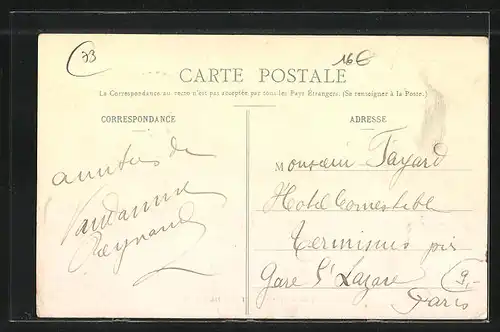 33
16€
CARTE POSTALE
La Correspondance au recto n'est pas acceptée par tous les Pays Étrangers. (Se renseigner à la Poste.)
CORRESPONDANCE
ADRESSE
amitiés de
Reynaud
Monsieur Fayard
Hotel Comestible
Terminus
Gare St Lazare
Paris
9,-